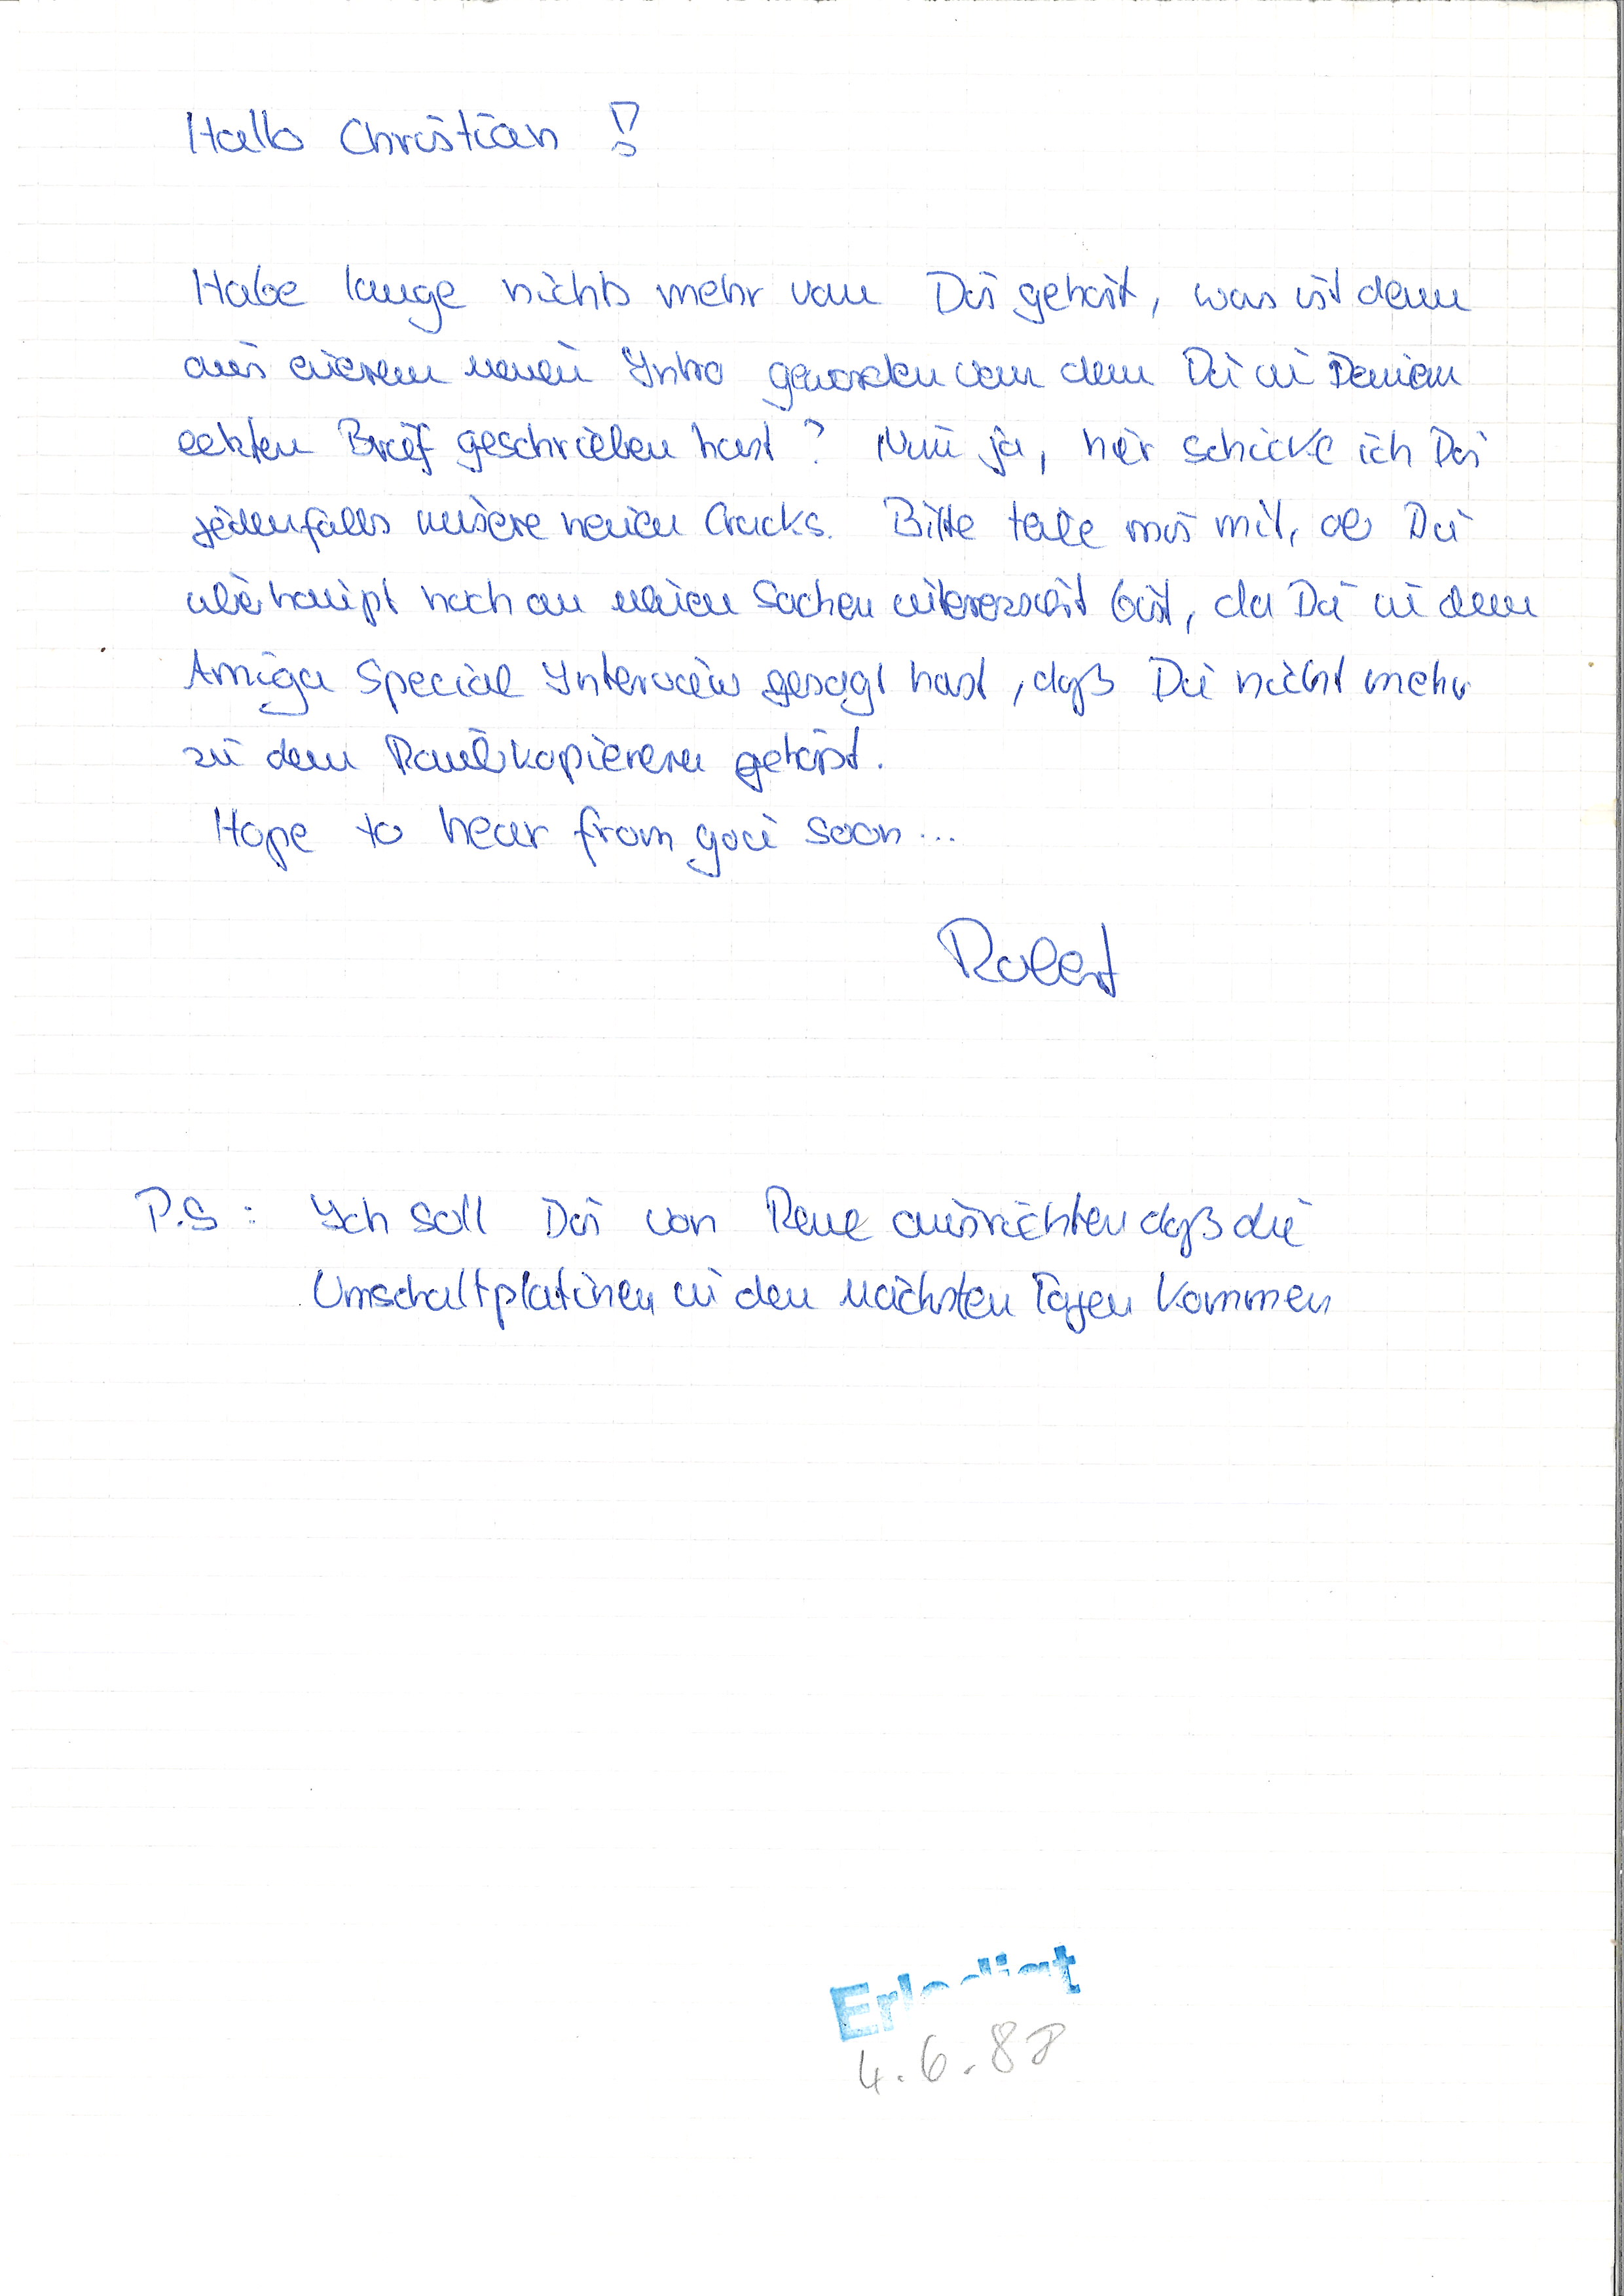 Hallo Christian !
Habe lange nichts mehr von Dir gehört, was ist denn
aus eurem neuen Intro geworden von dem Du in Deinem
letzten Brief geschrieben hast ? Nun ja, hier schicke ich Dir
jedenfalls unsere neuen Cracks. Bitte teile mir mit, ob Du
überhaupt noch an neuen Sachen interessiert bist, da Du in dem
Amiga Special Interview gesagt hast, daß Du nicht mehr
zu den Raubkopierern gehörst.
Hope to hear from you soon...
Robert
P.S : Ich soll Dir von Rene ausrichten daß die
Umschaltplatinen in den nächsten Tagen kommen
Erledigt
4.6.88